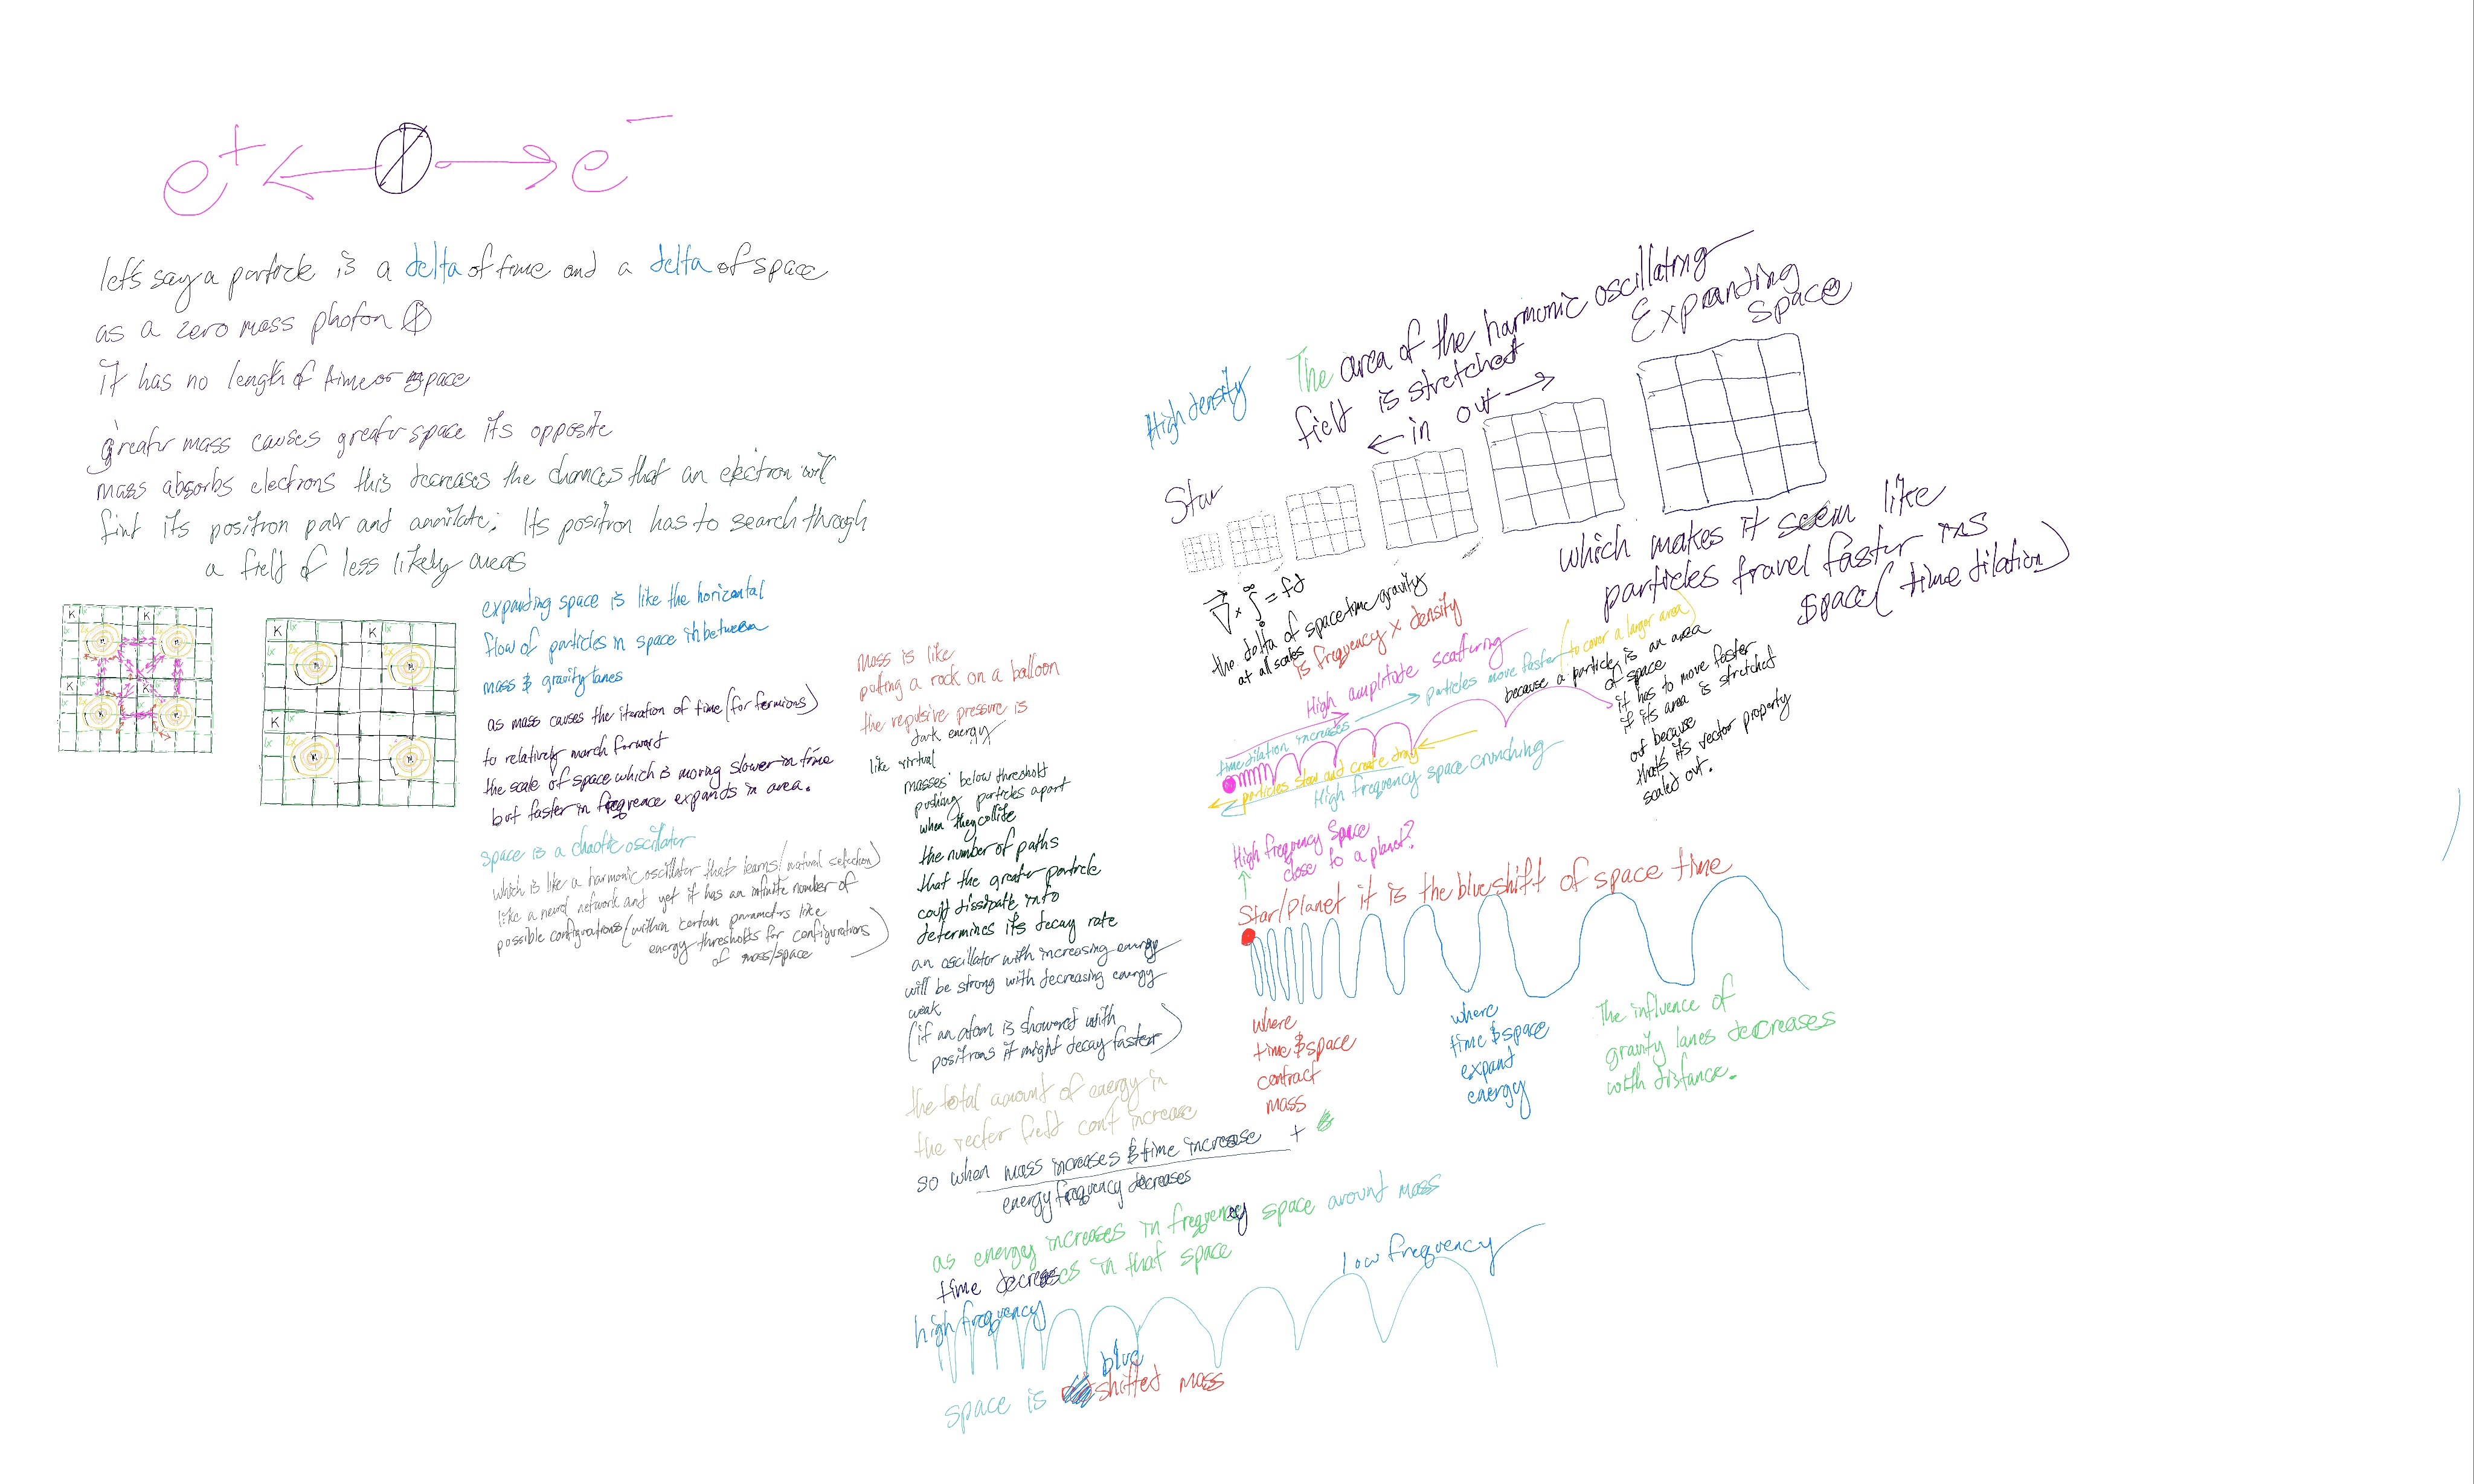 e+ e-
let's say a particle is a delta of time and a delta of space
as a zero mass photon
it has no length of time or space
greater mass causes greater space its opposite
mass absorbs electrons this decreases the chances that an electron will
find its positron pair and annilate; Its positron has to search through
a field of less likely areas
K K
K K
K K
K K
expanding space is like the horizontal
flow of particles in space in between
mass & gravity lanes
as mass causes the iteration of time (for fermions)
to relatively march forward
the scale of space which is moving slower in time
but faster in freqreence expands in area.
space is a chaotic oscillator
which is like a harmonic oscillator that learns/natural selection)
like a neural network and yet it has an infinite number of
possible configurations (within certain parameters like
energy thresholds for configurations
of mass/space
mass is like
putting a rock on a balloon
the repulsive pressure is
dark energy
like virtual
masses below threshold
pushing particles apart
when they collide
the number of paths
that the greater particle
could dissipate into
determines its decay rate
an oscillator with increasing energy
will be strong with decreasing energy
weak
(if an atom is showered with
positrons it might decay faster)
the total amount of energy in
the vector field can't increase
so when mass increases & time increase +
energy frequency decreases
as energy increases in frequency space around mass
time decreases in that space
high frequency
low frequency
blue
space is shifted mass
High density
The area of the harmonic oscillating
field is stretched
← in out →
Expanding
space
Star
which makes it seem like
particles travel faster ins
space (time dilation)
the delta of spacetime gravity
at all scales
is frequency x density
High amplitude scattering
time dilation increases
particles move faster (to cover a larger area)
because a particle is an area
of space
it has to move faster
if its area is stretched
out because
that's its vector property
scaled out.
particles slow and create drag
High frequency space crunching
High frequency Space
close to a planet?
Star/Planet it is the blueshift of space time
where
time & space
contract
mass
where
time & space
expand
energy
The influence of
gravity lanes decreases
with distance.